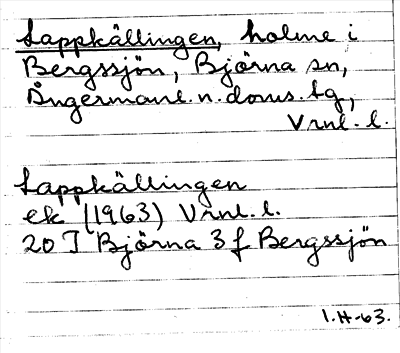 Lappkällingen, holme i
Bergssjön, Björna sn,
Ångermanl. n. doms. tg,
Vrnl. l.
Lappkällingen
ek (1963) Vrnl. l.
20 I Björna 3 f Bergssjön
1.H-63.